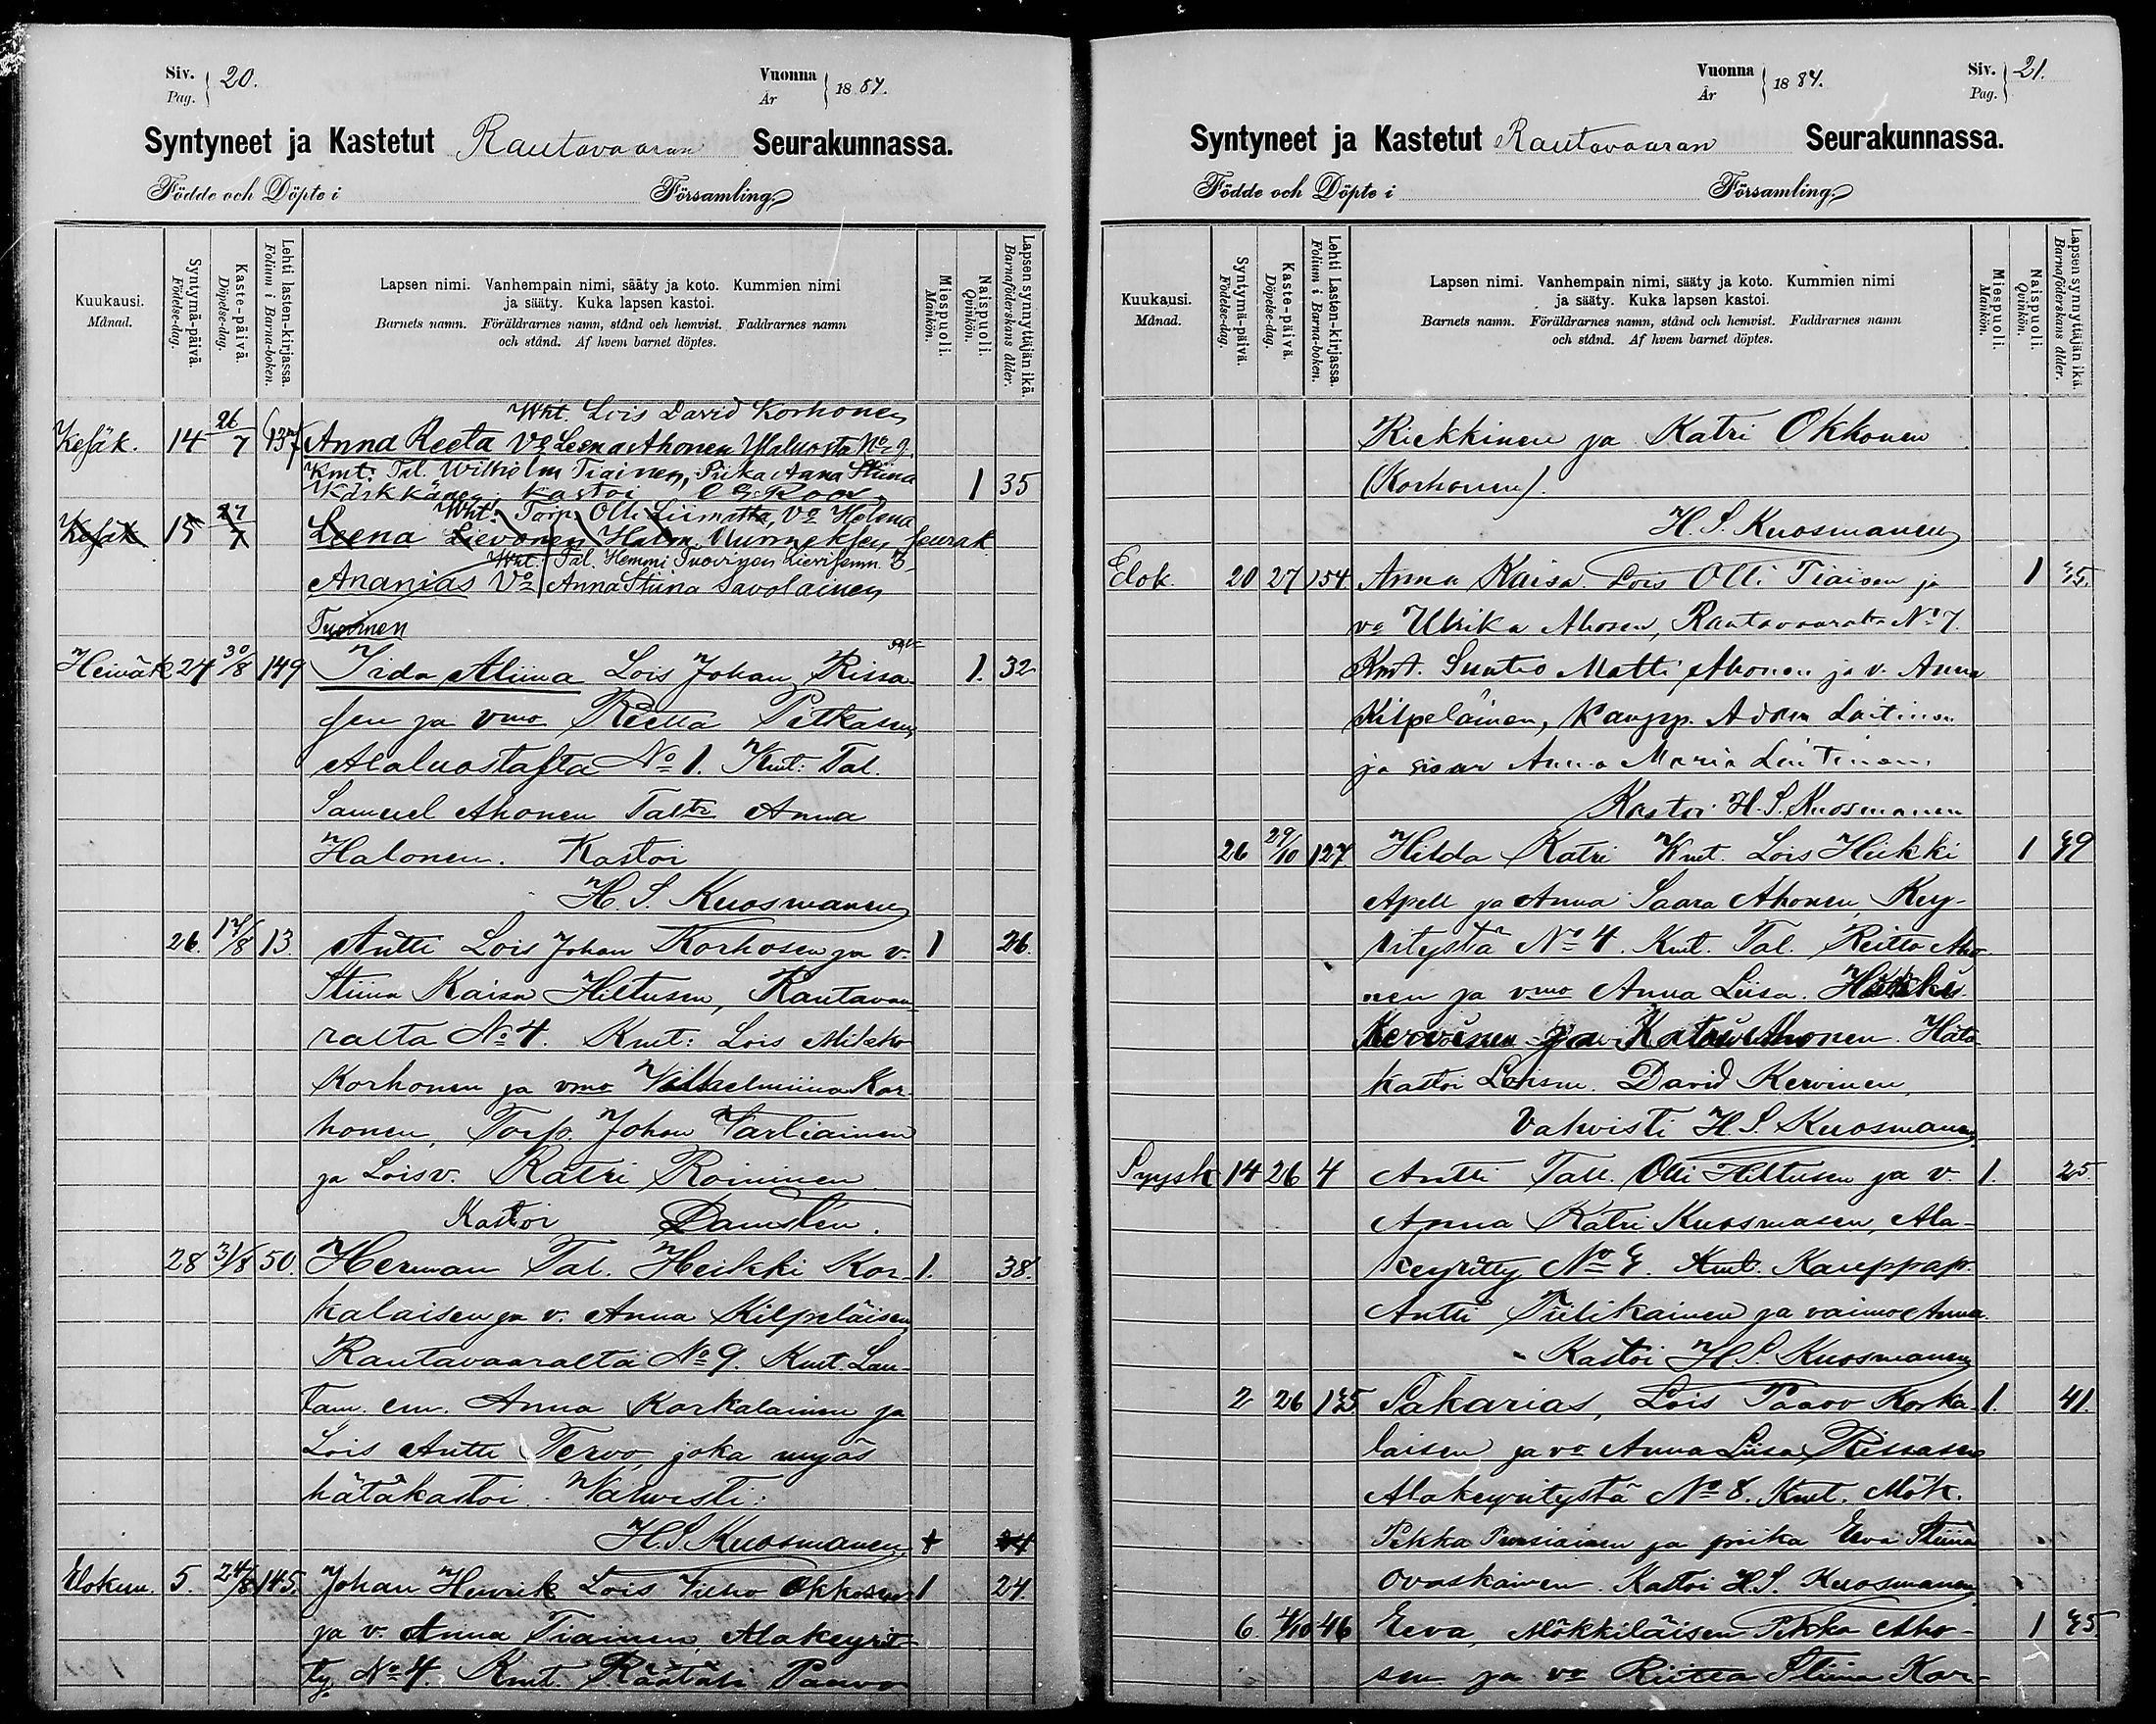 Siv. Pag. 20.
Vuonna År 1884.
Syntyneet ja Kastetut Rautavaaran Seurakunnassa.
Födde och Döpte i Församling.
Kuukausi. Månad.
Syntymä-päivä. Födelse-dag.
Kaste-päivä. Döpelse-dag.
Lehti lasten-kirjassa. Folium i Barna-boken.
Lapsen nimi. Vanhempain nimi, sääty ja koto. Kummien nimi
ja sääty. Kuka lapsen kastoi.
Barnets namn. Föräldrarnes namn, stånd och hemvist. Faddrarnes namn
och stånd. Af hvem barnet döptes.
Miespuoli. Mankön.
Naispuoli. Qvinkön.
Lapsen synnyttäjän ikä. Barnaföderskans ålder.
Wht. Lois David Korhonen
Kesäk. 14 26/7 137 Anna Reeta Vo Leena Ahonen Yläluosta No 9.
Kmt. Tal. Wilhelm Tiainen, Piika Anna Stiina 1 35
Kärkkäinen kastoi
Wht. Torp. Olli Liimatta, Vo Helena
Kesäk 15 27/7 Leena Lievonen Halm Nurmeksen seurak
Wht. Tal. Hemmi Tuovinen
Ananias Vo Anna Stiina Savolainen
Tuovinen
Heinäk 24 30/8 149 Iida Aliina Lois Johan Rissa- 1. 32
sen ja vmo Reetta Pitkäsen
Alaluostasta No 1. Kmt: Tal.
Samuel Ahonen Taltr Anna
Halonen. Kastoi
H. S. Kuosmanen
26. 17/8 13. Antti Lois Johan Korhosen ja v. 1 26.
Stiina Kaisa Hiltusen, Rautavaa
ralta No 4. Kmt: Lois Mikko
Korhonen ja vmo Wilhelmiina Kor
honen, Torp. Johan Tartiainen
ja Lois v. Katri Roininen
Kastoi Damstén.
28 31/8 50. Herman Tal. Heikki Kor- 1. 38.
kalaisen ja v. Anna Kilpeläisen
Rautavaaralta No 9. Kmt. Lau-
tam. em. Anna Korkalainen ja
Lois Antti Tervo, joka myös
hätäkastoi. Wahvisti:
H. S. Kuosmanen
Elokuu. 5. 24/8 145. Johan Henrik Lois Juho Okkosen 1 24.
ja v. Anna Tiainen, Alakeyrit-
ty No 4. Kmt. Räätäli Paavo
Vuonna År 1884.
Siv. Pag. 21.
Syntyneet ja Kastetut Rautavaaran Seurakunnassa.
Födde och Döpte i Församling.
Kuukausi. Månad.
Syntymä-päivä. Födelse-dag.
Kaste-päivä. Döpelse-dag.
Lehti Lasten-kirjassa. Folium i Barna-boken.
Lapsen nimi. Vanhempain nimi, sääty ja koto. Kummien nimi
ja sääty. Kuka lapsen kastoi.
Barnets namn. Föräldrarnes namn, stånd och hemvist. Faddrarnes namn
och stånd. Af hvem barnet döptes.
Miespuoli. Mankön.
Naispuoli. Qvinkön.
Lapsen synnyttäjän ikä. Barnaföderskans ålder.
Riekkinen ja Katri Okkonen
(Korhonen).
H. S. Kuosmanen
Elok. 20 27 154 Anna Kaisa. Lois Olli Tiaisen ja 1 35.
vo Ulrika Ahosen, Rautavaaralta No 7.
Kmt. Suntio Matti Ahonen ja v. Anna
Kilpeläinen, Kaupp. Adam Laitinen
ja sisar Anna Maria Laitinen.
Kastoi H. S. Kuosmanen
26 29/10 127 Hilda Katri Kmt. Lois Heikki 1 39
Apell ja Anna Saara Ahonen, Key-
ritystä No 4. Kmt. Tal. Reitto Aho
nen ja vmo Anna Liisa. Heikki
Kervinen ja Katri Ahonen. Hätä
kastoi Loism. David Kervinen,
Vahvisti H. S. Kuosmanen
Syysk 14 26 4 Antti Tall. Olli Hiltusen ja v. 1. 25.
Anna Katri Kuosmasen, Ala-
keyritty No 3. Kmt. Kauppap.
Antti Tiilikainen ja vaimo Anna.
Kastoi H. S. Kuosmanen
2 26 135 Sakarias, Lois Paavo Korka 1. 41.
laisen ja vo Anna Liisa Rissasen
Alakeyritystä No 8. Kmt. Mök.
Pekka Pursiainen ja piika Eeva Stiina
Ovaskainen. Kastoi H. S. Kuosmanen
6. 4/10 46 Eeva, Mökkiläisen Pekka Aho- 1 35.
sen ja vo Riitta Stiina Kor-